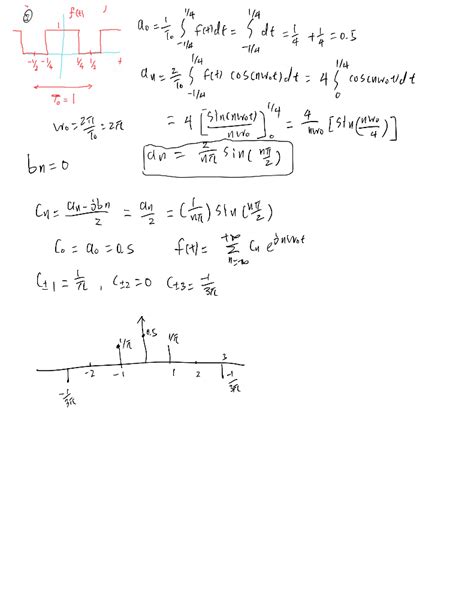 ② f(t)
1
-1/2 -1/4 1/4 1/2 t
T₀ = 1
a₀ = 1/T₀ ∫_{-1/4}^{1/4} f(t)dt = ∫_{-1/4}^{1/4} dt = 1/4 + 1/4 = 0.5
aₙ = 2/T₀ ∫_{-1/4}^{1/4} f(t) cos(nω₀t)dt = 4 ∫_0^{1/4} cos(nω₀t)dt
ω₀ = 2π/T₀ = 2π
= 4 [sin(nω₀t)/nω₀]_0^{1/4} = 4/nω₀ [sin(nω₀/4)]
aₙ = 2/nπ sin(nπ/2)
bₙ = 0
Cₙ = (aₙ - jbₙ)/2 = aₙ/2 = (1/nπ) sin(nπ/2)
C₀ = a₀ = 0.5 f(t) = ∑_{n=-∞}^{+∞} Cₙ e^{jnω₀t}
C±1 = 1/π, C±2 = 0 C±3 = -1/3π
0.5
1/π 1/π
-2 -1 1 2 3
-1/3π -1/3π